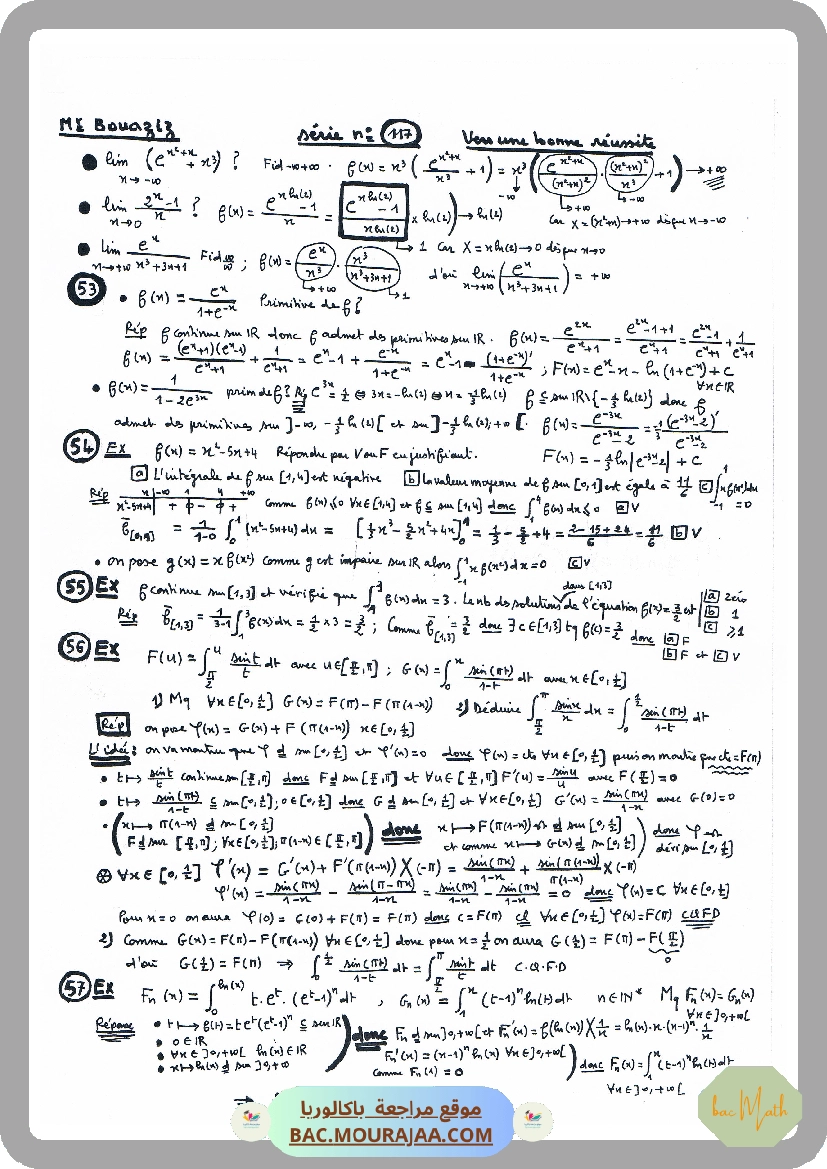 Mr Bouaziz série n: 117 Vers une bonne réussite
• lim x→-∞ (e^(x²+x) + x³) ? Fid -∞+∞. f(x) = x³ (e^(x²+x)/x³ + 1) = x³ (e^(x²+x)/(x²+x)² · (x²+x)²/x³ + 1) → +∞
• lim x→0 (2^x - 1)/x ? f(x) = (e^(x ln(2)) - 1)/x = (e^(x ln(2)) - 1)/(x ln(2)) × ln(2) → ln(2) car X = (x²+x) → +∞ dès que x→-∞
→ 1 car X = x ln(2) → 0 dès que x→0
• lim x→+∞ e^x/(x³+3x+1) Fid ∞/∞ ; f(x) = (e^x/x³) · (x³/(x³+3x+1)) d'où lim x→+∞ (e^x/(x³+3x+1)) = +∞
53 • f(x) = e^x/(1+e^-x) Primitive de f ?
Rép f continue sur IR donc f admet des primitives sur IR. f(x) = e^2x/(e^x+1) = (e^2x-1+1)/(e^x+1) = (e^2x-1)/(e^x+1) + 1/(e^x+1)
f(x) = (e^x+1)(e^x-1)/(e^x+1) + 1/(e^x+1) = e^x - 1 + e^-x/(1+e^-x) = e^x - 1 - (1+e^-x)'/(1+e^-x) ; F(x) = e^x - x - ln(1+e^-x) + C ∀x∈IR
• f(x) = 1/(1-2e^3x) prim de f ? Rép e^3x = 1/2 ⇔ 3x = -ln(2) ⇔ x = -1/3 ln(2) f C sur IR\{-1/3 ln(2)} donc f
admet des primitives sur ]-∞, -1/3 ln(2)[ et sur ]-1/3 ln(2); +∞[. f(x) = e^-3x/(e^-3x - 2) = -1/3 (e^-3x - 2)'/(e^-3x - 2)
54 Ex f(x) = x²-5x+4 Répondre par V ou F en justifiant. F(x) = -1/3 ln|e^-3x - 2| + C
a L'intégrale de f sur [1,4] est négative b La valeur moyenne de f sur [0,1] est égale à 11/6 c ∫_-1^1 x f(x²) dx = 0
Rép x | -∞ 1 4 +∞
x²-5x+4 | + 0 - 0 + Comme f(x) ≤ 0 ∀x∈[1,4] et f C sur [1,4] donc ∫_1^4 f(x) dx ≤ 0 a V
f̄[0,1] = 1/(1-0) ∫_0^1 (x²-5x+4) dx = [1/3 x³ - 5/2 x² + 4x]_0^1 = 1/3 - 5/2 + 4 = (2-15+24)/6 = 11/6 b V
• on pose g(x) = x f(x²) comme g est impaire sur IR alors ∫_-1^1 x f(x²) dx = 0 c V
55 Ex f continue sur [1,3] et vérifie que ∫_1^3 f(x) dx = 3. Le nb des solutions dans [1,3] de l'équation f(x) = 3/2 est a zéro b 1 c ≥1
Rép f̄[1,3] = 1/(3-1) ∫_1^3 f(x) dx = 1/2 × 3 = 3/2 ; Comme f̄[1,3] = 3/2 donc ∃ c∈[1,3] tq f(c) = 3/2 donc a F
b F et c V
56 Ex F(u) = ∫_(π/2)^u sint/t dt avec u∈[π/2, π] ; G(x) = ∫_0^x sin(πt)/(1-t) dt avec x∈[0, 1/2]
1) Mq ∀x∈[0, 1/2] G(x) = F(π) - F(π(1-x)) 2) Déduire ∫_(π/2)^π sinx/x dx = ∫_0^(1/2) sin(πt)/(1-t) dt
Rép on pose φ(x) = G(x) + F(π(1-x)) x∈[0, 1/2]
L'idée : on va montrer que φ d sur [0, 1/2] et φ'(x) = 0 donc φ(x) = cte ∀x∈[0, 1/2] puis on montre que cte = F(π)
• t↦ sint/t continue sur [π/2, π] donc F d sur [π/2, π] et ∀u∈[π/2, π] F'(u) = sinu/u avec F(π/2) = 0
• t↦ sin(πt)/(1-t) C sur [0, 1/2] ; 0∈[0, 1/2] donc G d sur [0, 1/2] et ∀x∈[0, 1/2] G'(x) = sin(πx)/(1-x) avec G(0) = 0
• (x↦ π(1-x) d sur [0, 1/2] donc x↦ F(π(1-x)) est d sur [0, 1/2] donc φ est
F d sur [π/2, π] ; ∀x∈[0, 1/2] ; π(1-x)∈[π/2, π]) et comme x↦ G(x) d sur [0, 1/2] dériv sur [0, 1/2]
⊛ ∀x∈[0, 1/2] φ'(x) = G'(x) + F'(π(1-x)) × (-π) = sin(πx)/(1-x) + sin(π(1-x))/(π(1-x)) × (-π)
φ'(x) = sin(πx)/(1-x) - sin(π-πx)/(1-x) = sin(πx)/(1-x) - sin(πx)/(1-x) = 0 donc φ(x) = C ∀x∈[0, 1/2]
Pour x = 0 on aura φ(0) = G(0) + F(π) = F(π) donc c = F(π) cl ∀x∈[0, 1/2] φ(x) = F(π) CQFD
2) Comme G(x) = F(π) - F(π(1-x)) ∀x∈[0, 1/2] donc pour x = 1/2 on aura G(1/2) = F(π) - F(π/2)
0
d'où G(1/2) = F(π) ⇒ ∫_0^(1/2) sin(πt)/(1-t) dt = ∫_(π/2)^π sint/t dt C.Q.F.D
57 Ex Fn(x) = ∫_0^ln(x) t.e^t.(e^t-1)^n dt , Gn(x) = ∫_1^x (t-1)^n ln(t) dt n∈IN* Mq Fn(x) = Gn(x)
∀x∈]0,+∞[
Réponse • t↦ f(t) = t e^t (e^t-1)^n C sur IR donc Fn d sur ]0,+∞[ et Fn'(x) = f(ln(x)) × 1/x = ln(x).x.(x-1)^n.1/x
• 0∈IR
• ∀x∈]0,+∞[ ln(x)∈IR Fn'(x) = (x-1)^n ln(x) ∀x∈]0,+∞[ donc Fn(x) = ∫_1^x (t-1)^n ln(t) dt
• x↦ ln(x) d sur ]0,+∞ comme Fn(1) = 0 ∀x∈]0,+∞[
موقع مراجعة باكالوريا
BAC.MOURAJAA.COM
bac Math